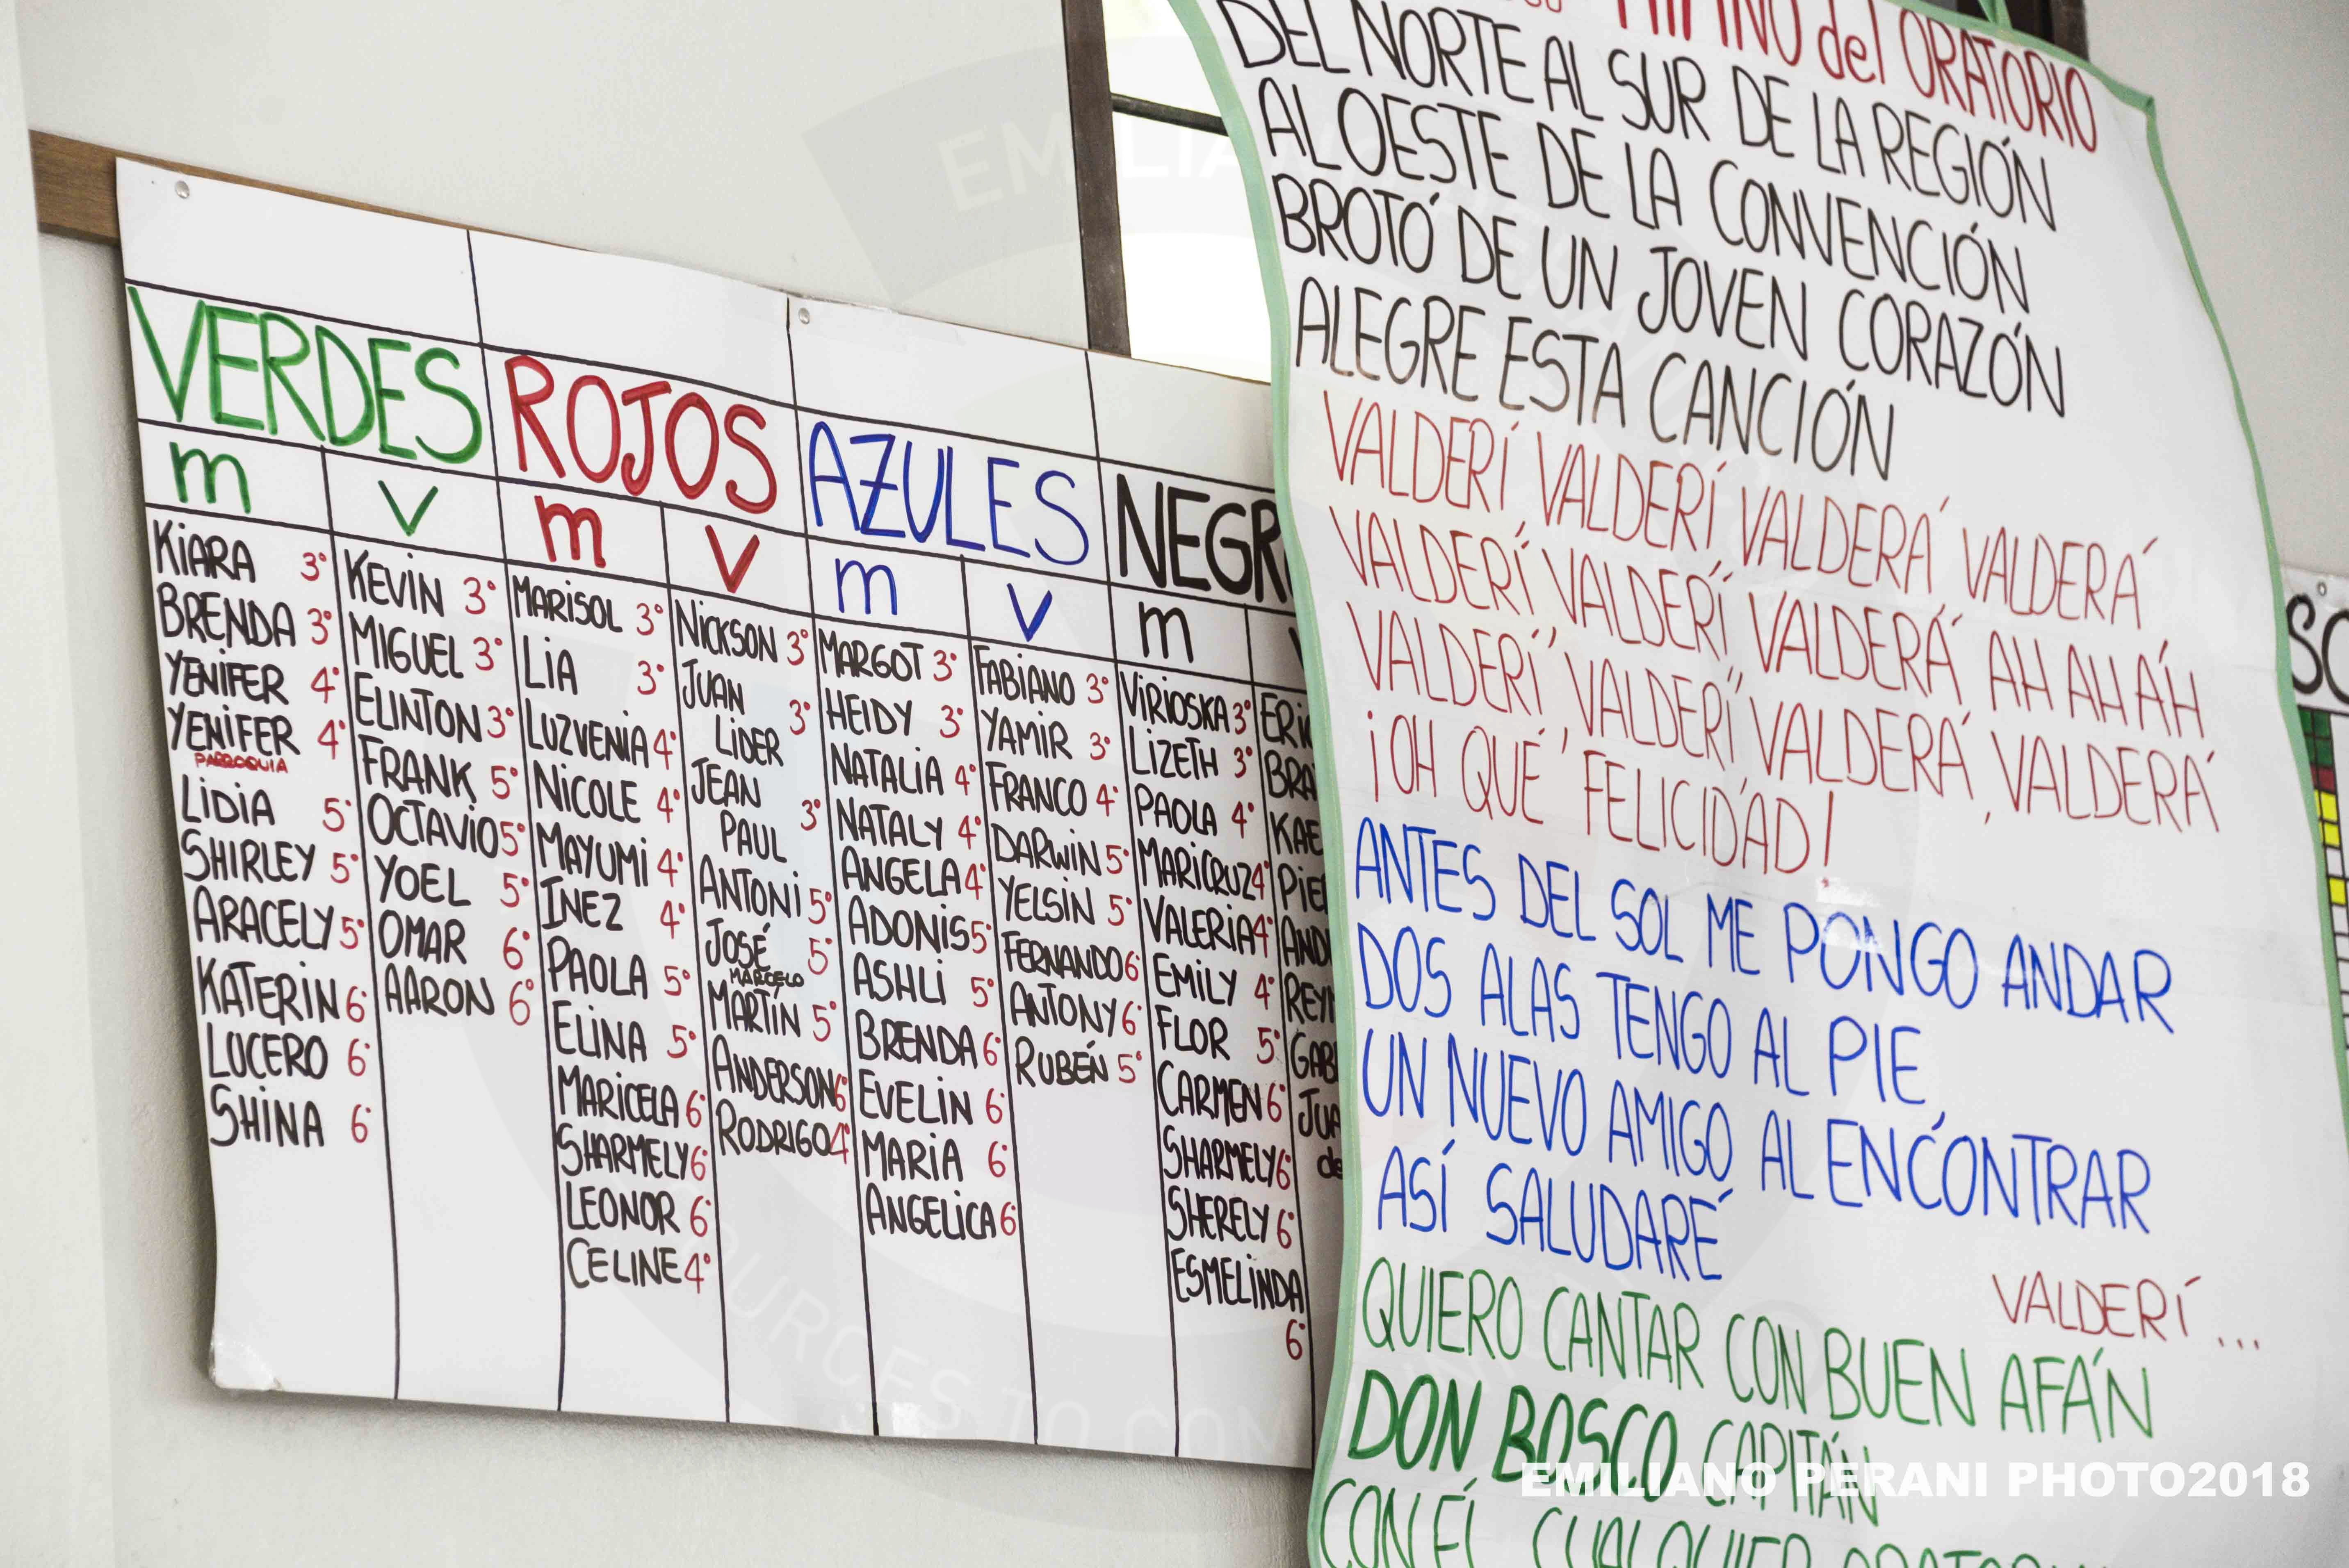 VERDES
m
KIARA 3°
BRENDA 3°
YENIFER 4°
YENIFER 4°
PARROQUIA
LIDIA 5°
SHIRLEY 5°
ARACELY 5°
KATERIN 6°
LUCERO 6°
SHINA 6°
v
KEVIN 3°
MIGUEL 3°
ELINTON 3°
FRANK 5°
OCTAVIO 5°
YOEL 5°
OMAR 6°
AARON 6°
ROJOS
m
MARISOL 3°
LIA 3°
LUZVENIA 4°
NICOLE 4°
MAYUMI 4°
INEZ 4°
PAOLA 5°
ELINA 5°
MARICELA 6°
SHARMELY 6°
LEONOR 6°
CELINE 4°
v
NICKSON 3°
JUAN
LIDER 3°
JEAN
PAUL 3°
ANTONI 5°
JOSÉ 5°
MARCELO
MARTÍN 5°
ANDERSON 6°
RODRIGO 4°
AZULES
m
MARGOT 3°
HEIDY 3°
NATALIA 4°
NATALY 4°
ANGELA 4°
ADONIS 5°
ASHLI 5°
BRENDA 6°
EVELIN 6°
MARIA 6°
ANGELICA 6°
v
FABIANO 3°
YAMIR 3°
FRANCO 4°
DARWIN 5°
YELSIN 5°
FERNANDO 6°
ANTONY 6°
RUBÉN 5°
NEGR
m
VIRIOSKA 3°
LIZETH 3°
PAOLA 4°
MARICRUZ 4°
VALERIA 4°
EMILY 4°
FLOR 5°
CARMEN 6°
SHARMELY 6°
SHERELY 6°
ESMELINDA
6°
BRA
KAE
PIE
AND
REY
GAB
JUA
de
HIMNO del ORATORIO
DEL NORTE AL SUR DE LA REGIÓN
AL OESTE DE LA CONVENCIÓN
BROTÓ DE UN JOVEN CORAZÓN
ALEGRE ESTA CANCIÓN
VALDERÍ VALDERÍ VALDERÁ VALDERÁ
VALDERÍ VALDERÍ VALDERÁ AH AH ÁH
VALDERÍ VALDERÍ VALDERÁ, VALDERÁ
¡OH QUÉ FELICIDAD!
ANTES DEL SOL ME PONGO ANDAR
DOS ALAS TENGO AL PIE
UN NUEVO AMIGO AL ENCONTRAR
ASÍ SALUDARÉ
VALDERÍ...
QUIERO CANTAR CON BUEN AFÁN
DON BOSCO CAPITÁN
CON ÉL CUALQUIER
EMILIANO PERANI PHOTO2018